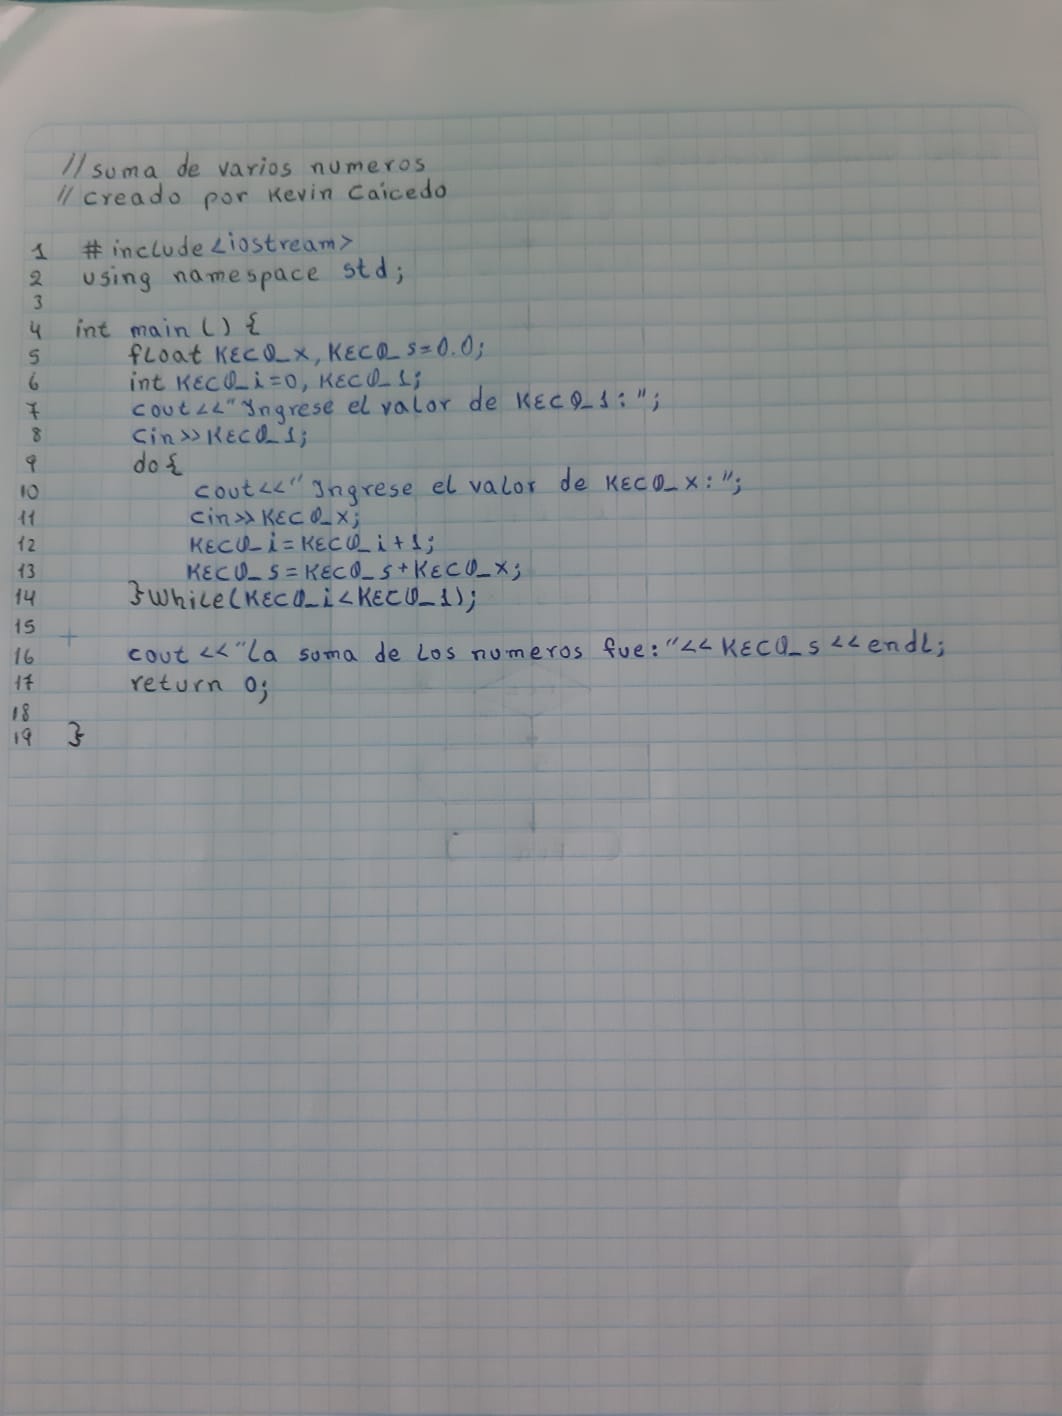 // suma de varios numeros
// creado por Kevin Caicedo
1 #include<iostream>
2 using namespace std;
3
4 int main () {
5 float KECO_x, KECO_s=0.0;
6 int KECO_i=0, KECO_1;
7 cout<<"Ingrese el valor de KECO_1:";
8 cin>>KECO_1;
9 do{
10 cout<<"Ingrese el valor de KECO_x:";
11 cin>>KECO_x;
12 KECO_i=KECO_i+1;
13 KECO_s=KECO_s+KECO_x;
14 }while(KECO_i<KECO_1);
15
16 cout <<"La suma de los numeros fue:"<<KECO_s<<endl;
17 return 0;
18
19 }